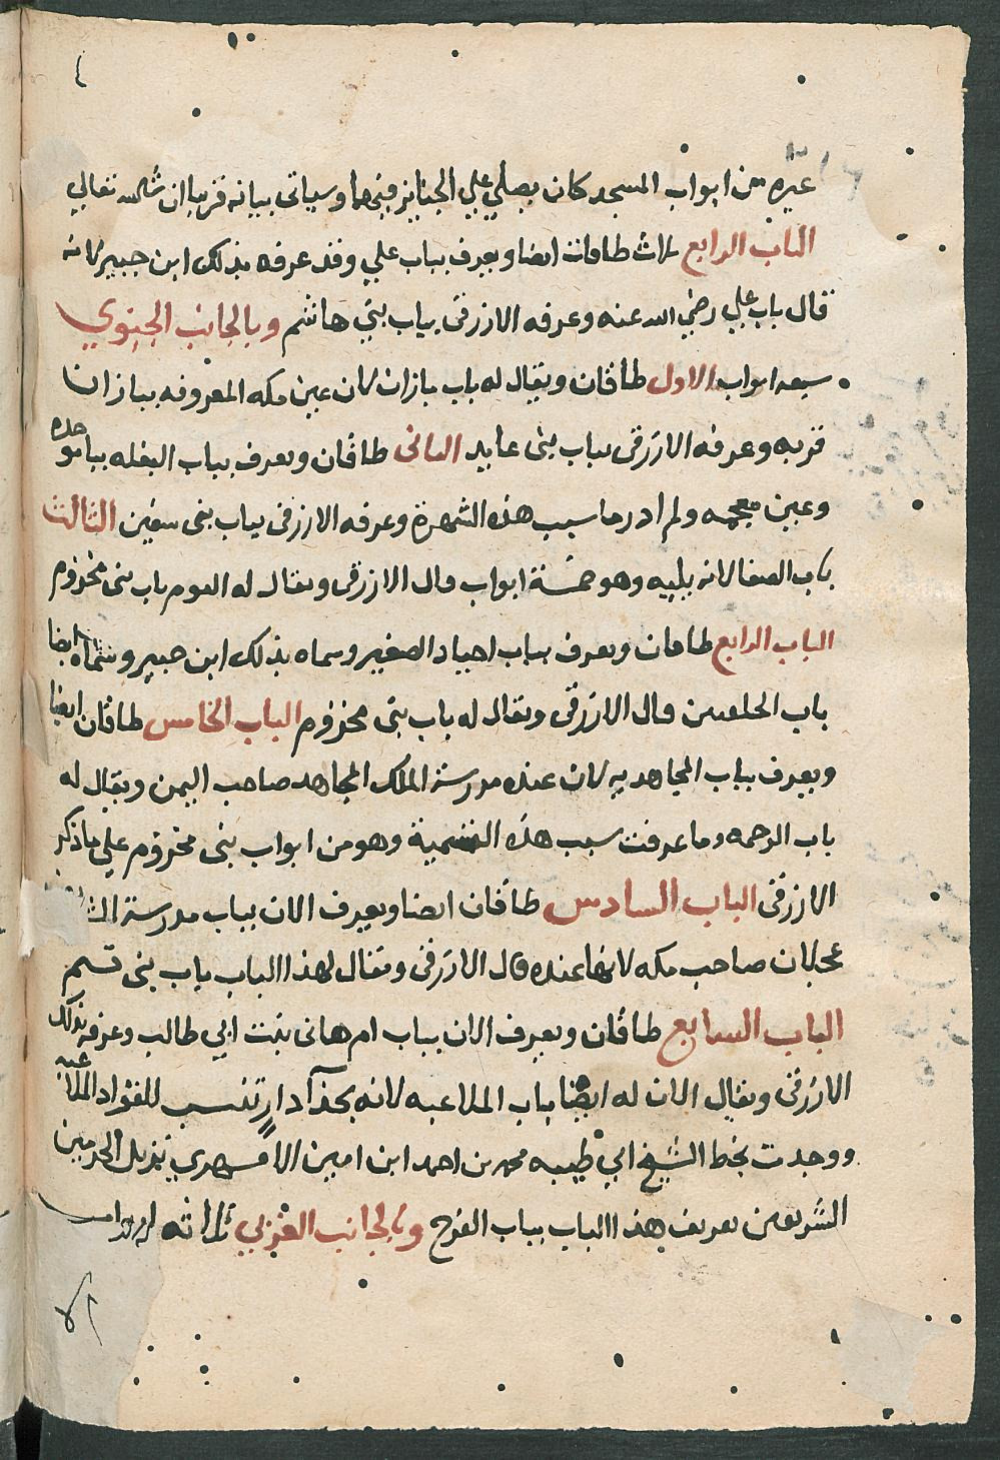 ٤
غيره من ابواب المسجد كان يصلي علي الجنايز فيها وسياتى بيانه قريبا ان شاالله تعالي
الباب الرابع ثلاث طاقات ايضا ويعرف بباب علي وقد عرفه بذلك ابن جبير لانه
قال باب علي رضي الله عنه وعرفه الازرقى بباب بني هاشم وبالجانب الجنوبي
سبعه ابواب الاول طاقان ويقال له باب بازان لان عين مكه المعروفه ببازان
قربه وعرفه الازرقى بباب بنى عايد الثانى طاقان ويعرف بباب البغله بباموحده
وغين معجمه ولم ادر ما سبب هذه الشهرة وعرفه الازرقى بباب بنى سفين الثالث
باب الصفا لانه يليه وهو خمسة ابواب قال الازرقى ويقال له اليوم باب بنى مخزوم
الباب الرابع طاقان ويعرف بباب اجياد الصغير وسماه بذلك ابن جبير وسماه ايضا
باب الخلقيين قال الازرقى ويقال له باب بنى مخزوم الباب الخامس طاقان ايضا
ويعرف بباب المجاهديه لان عنده مدرسة الملك المجاهد صاحب اليمن ويقال له
باب الرحمه وما عرفت سبب هذه التسمية وهو من ابواب بنى مخزوم علي ما ذكر
الازرقى الباب السادس طاقان ايضا ويعرف الان بباب مدرسة
عجلان صاحب مكه لانها عنده قال الازرقى ويقال لهذا الباب باب بنى تيم
الباب السابع طاقان ويعرف الان بباب ام هانى بنت ابي طالب وعرفه بذلك
الازرقى ويقال الان له ايضا باب الملاعبه لانه بحذآ دار تنسب للقواد الملاعبه
ووجدت بخط الشيخ ابي طيبه محمد بن احمد ابن امين الاقشهري نزيل الحرمين
الشريفين تعريف هذا الباب بباب الفرج وبالجانب الغزبي ثلاثه ابواب